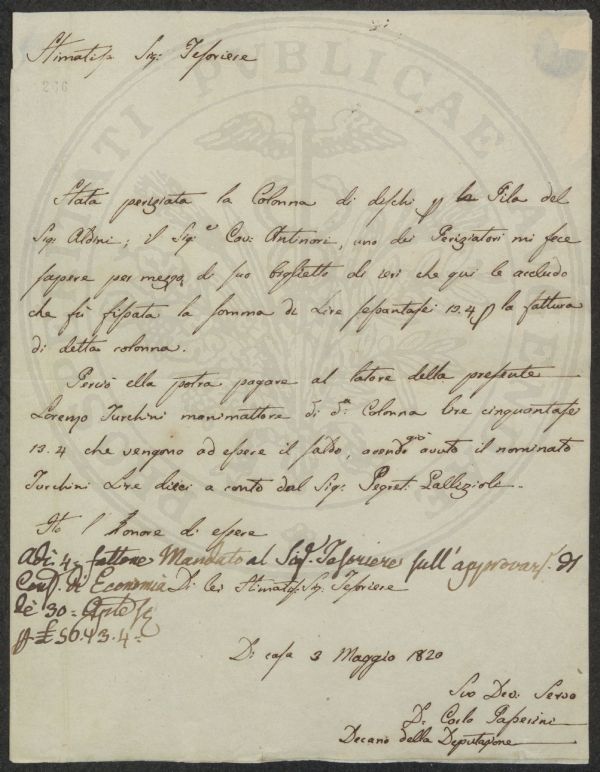 Stimatiss. Sig: Tesoriere
266
Stata periziata la Colonna di deschi p la Pila del
Sig: Aldini; il Sig.e Cav: Antinori, uno dei Periziatori mi fece
sapere per mezzo di suo biglietto di ieri che qui le accludo
che fù fissata la somma di Lire sessantasei 13.4 p la fattura
di detta colonna.
Perciò ella potrà pagare al latore della presente
Lorenzo Turchini manimattore di d.a Colonna lire cinquantasei
13.4 che vengono ad essere il saldo, avendo già avuto il nominato
Turchini Lire dieci a conto dal Sig: Segret:
Ho l'honore di essere
Adì 4 fattone Mandato al Sig.r Tesoriere sull'approvaz. di
Cons. di Economia Di lei Stimatiss. Sig: Tesoriere
le 30 Aprile
£ 56.13.4
Di casa 3 Maggio 1820
Suo Dev: Servo
D. Carlo Passerini
Decano della Deputazione